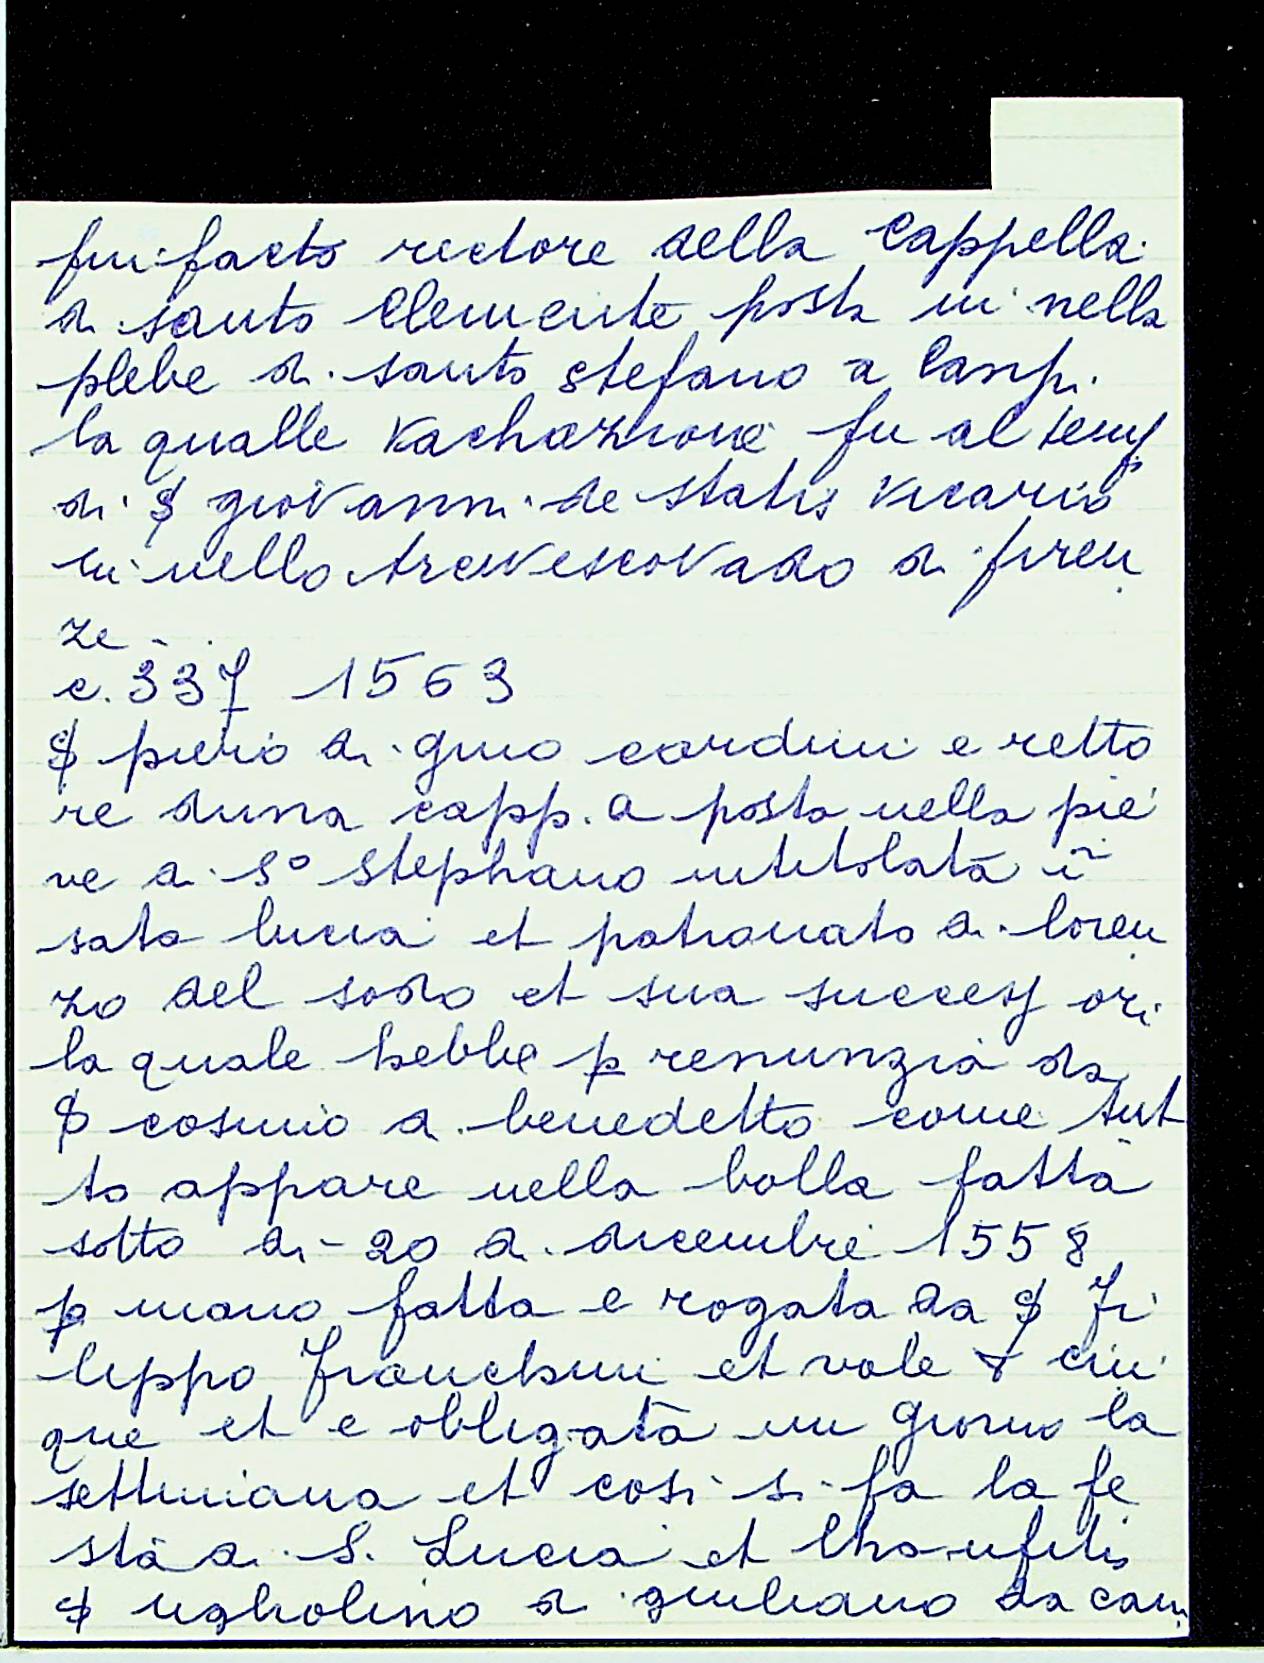 fui facto rectore della Cappella
di santo Clemente posta in nella
plebe di santo stefano a Campi
la qualle vachazione fu al temp
di $ giovanni de statis vicario
in nello Arcivescovado di firen
ze -
c. 337 1563
$ piero di gino cardini e retto
re duna capp.a posta nella pie
ve di So stephano intitolata ī
sata lucia et patronato di loren
zo del sodo et sua success ori
la quale hebbe p renunzia da
$ cosimo di benedetto come tut
to appare nella bolla fatta
sotto di - 20 di dicembre 1558
p mano fatta e rogata da $ Fi
lippo Franchini et vale cin
que et e obligata un giorno la
settimana et cosi si fa la fe
sta di S. Lucia et lha ufitis
$ ugholino di giuliano da cam